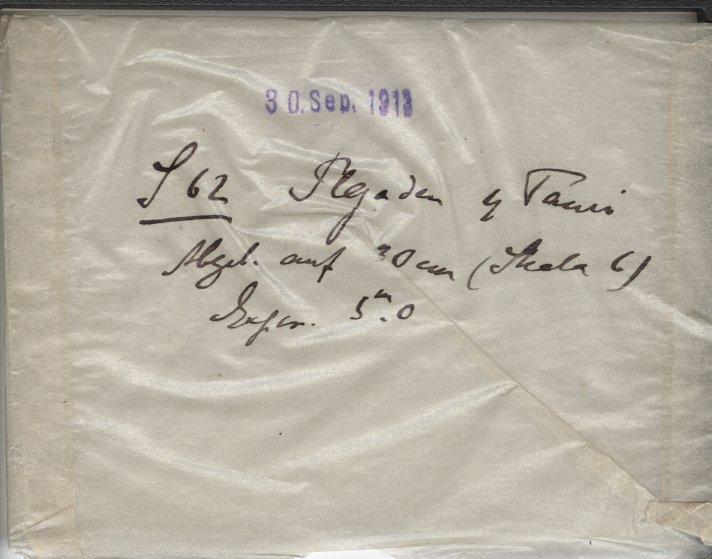 30. Sep. 1913
S 62 Plejaden η Tauri
Abgebl. auf 20 cm (Skala 6)
Expon. 5ᵐ.0